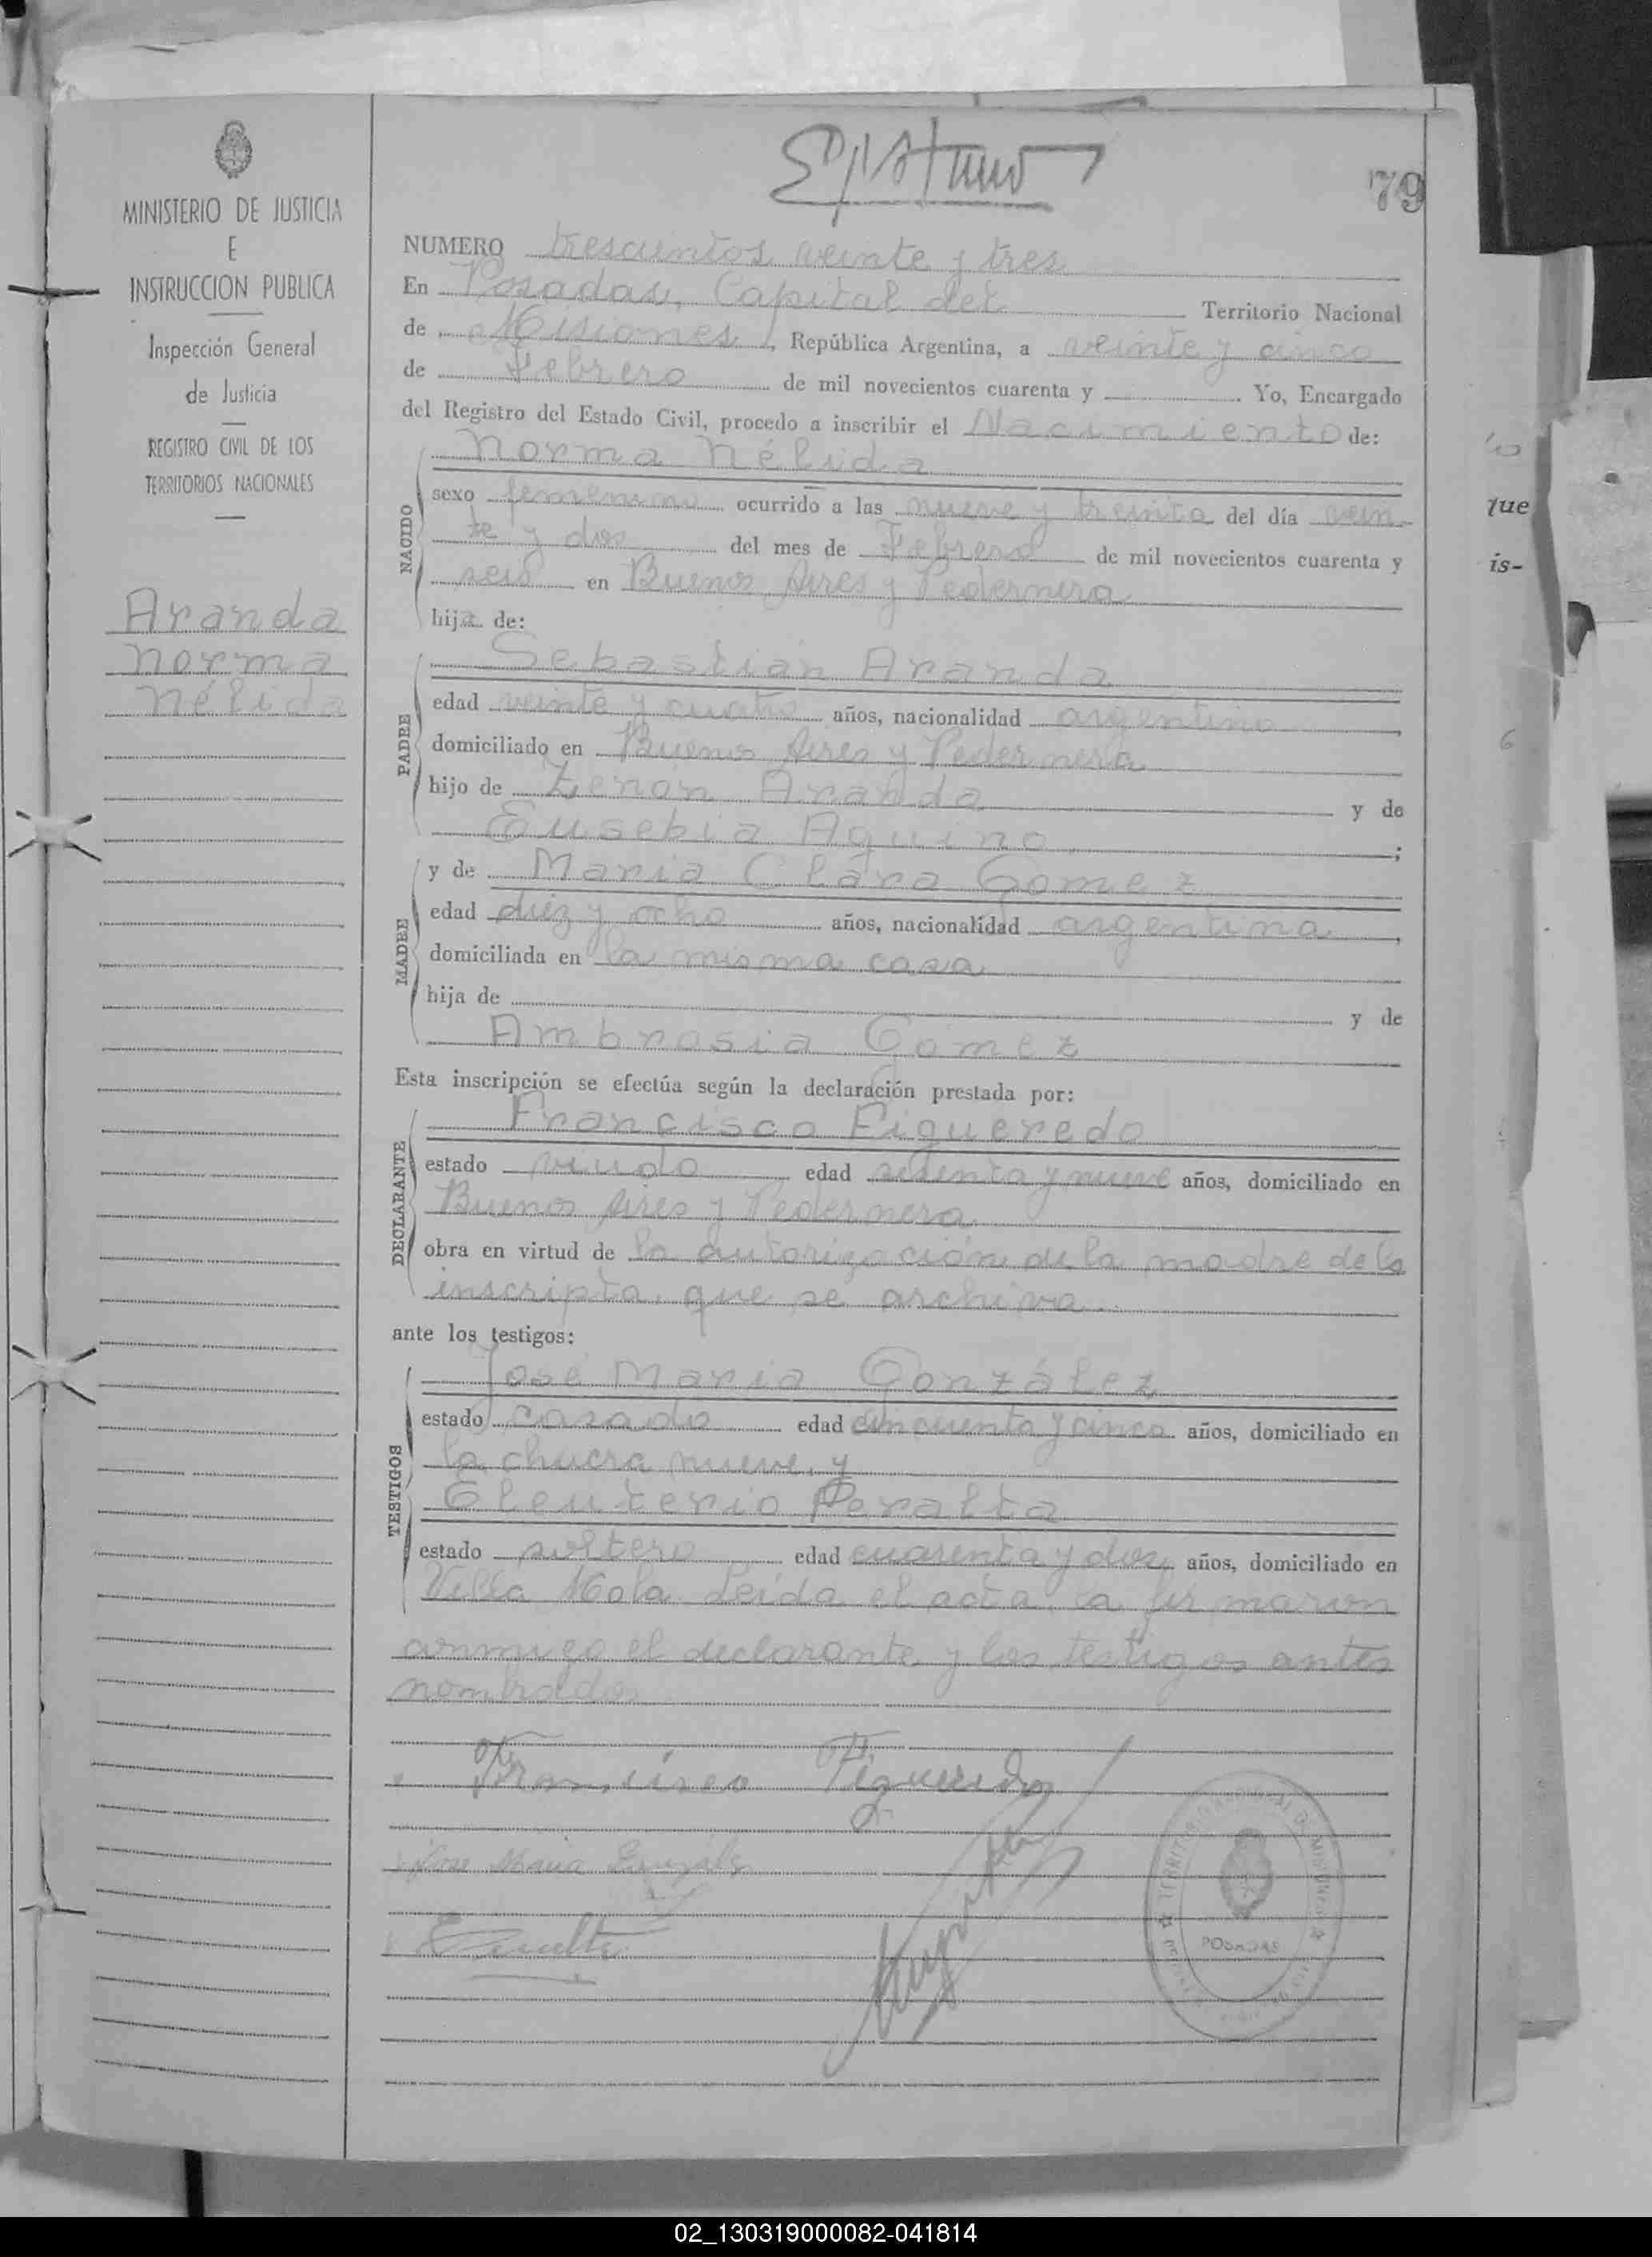 79
MINISTERIO DE JUSTICIA
E
INSTRUCCION PUBLICA
Inspección General
de Justicia
REGISTRO CIVIL DE LOS
TERRITORIOS NACIONALES
Aranda
Norma
Nélida
NUMERO trescientos veinte y tres
En Posadas, Capital del Territorio Nacional
de Misiones, República Argentina, a veinte y cinco
de Febrero de mil novecientos cuarenta y Yo, Encargado
del Registro del Estado Civil, procedo a inscribir el Nacimiento de:
NACIDO
Norma Nélida
sexo femenino ocurrido a las nueve y treinta del día vein-
te y dos del mes de Febrero de mil novecientos cuarenta y
seis en Buenos Aires y Pedernera
hija de:
PADRE
Sebastián Aranda
edad veinte y cuatro años, nacionalidad argentino,
domiciliado en Buenos Aires y Pedernera
hijo de Zenon Aranda y de
Eusebia Aquino ;
MADRE
y de Maria Clara Gomez
edad diez y ocho años, nacionalidad argentina,
domiciliada en la misma casa
hija de y de
Ambrosia Gomez
Esta inscripción se efectúa según la declaración prestada por:
DECLARANTE
Francisco Figueredo
estado viudo edad sesenta y nueve años, domiciliado en
Buenos Aires y Pedernera
obra en virtud de la autorización de la madre de la
inscripta, que se archiva.
ante los testigos:
TESTIGOS
José Maria González
estado casado edad cincuenta y cinco años, domiciliado en
la chacra nueve, y
Eleuterio Peralta
estado soltero edad cuarenta y dos años, domiciliado en
Villa Mola. Leída el acta, la firmaron
conmigo el declarante y los testigos antes
nombrados
Francisco Figueredo
Jose Maria Gonzalez
E Peralta
POSADAS
que
is-
6
02_130319000082-041814